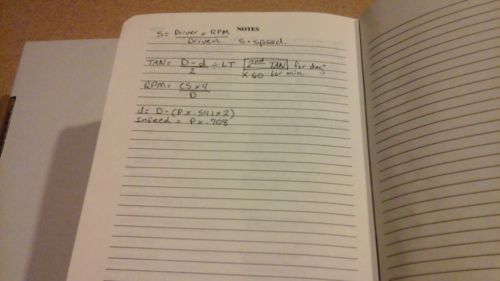 NOTES
S = Driver x RPM
Driven S = Speed.
TAN = D - d ÷ LT [2nd TAN] for deg°
2 x 60 for min.
RPM = CS x 4
D
d = D - (P x .541 x 2)
Infeed = P x .708